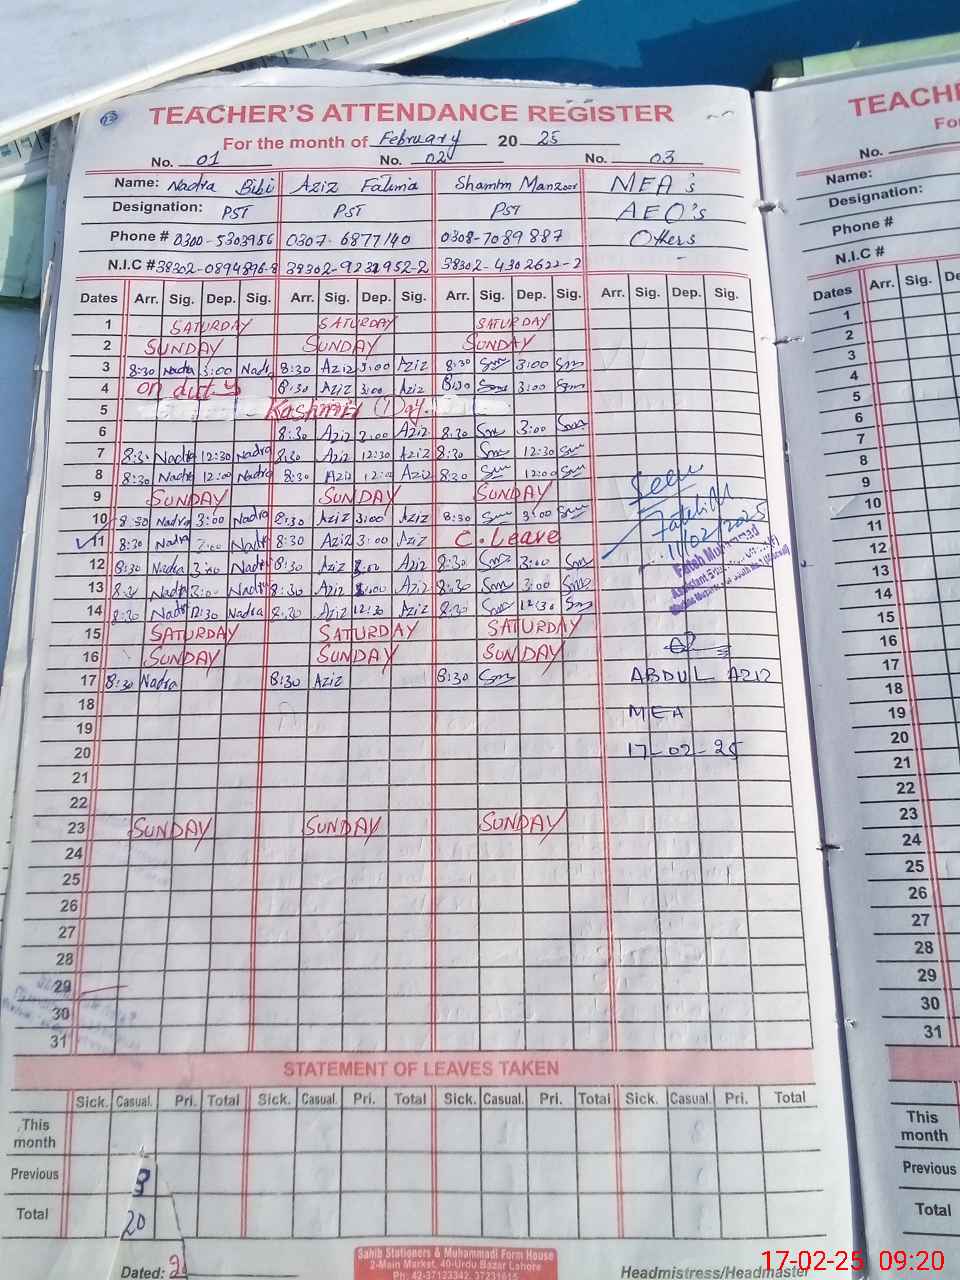 TEACHER'S ATTENDANCE REGISTER
For the month of February 20 25
No. 01 No. 02 No. 03
Name: Nadra Bibi Aziz Fatima Shamim Manzoor MEA's
Designation: PST PST PST AEO's
Phone # 0300-5303956 0307-6877140 0308-7089887 Others
N.I.C # 38302-0894896-8 38302-9231952-2 38302-4302622-2
Dates Arr. Sig. Dep. Sig. Arr. Sig. Dep. Sig. Arr. Sig. Dep. Sig. Arr. Sig. Dep. Sig.
1 SATURDAY SATURDAY SATURDAY
2 SUNDAY SUNDAY SUNDAY
3 8:30 Nadra 3:00 Nadra 8:30 Aziz 3:00 Aziz 8:30 Sm 3:00 Sm
4 on duty 8:30 Aziz 3:00 Aziz 8:30 Sm 3:00 Sm
5 Kashmir Day
6 8:30 Aziz 3:00 Aziz 8:30 Sm 3:00 Sm
7 8:30 Nadra 12:30 Nadra 8:30 Aziz 12:30 Aziz 8:30 Sm 12:30 Sm
8 8:30 Nadra 12:00 Nadra 8:30 Aziz 12:00 Aziz 8:30 Sm 12:00 Sm
9 SUNDAY SUNDAY SUNDAY
10 8:30 Nadra 3:00 Nadra 8:30 Aziz 3:00 Aziz 8:30 Sm 3:00 Sm
11 8:30 Nadra 3:00 Nadra 8:30 Aziz 3:00 Aziz C. Leave
12 8:30 Nadra 3:00 Nadra 8:30 Aziz 3:00 Aziz 8:30 Sm 3:00 Sm
13 8:30 Nadra 3:00 Nadra 8:30 Aziz 3:00 Aziz 8:30 Sm 3:00 Sm
14 8:30 Nadra 12:30 Nadra 8:30 Aziz 12:30 Aziz 8:30 Sm 12:30 Sm
15 SATURDAY SATURDAY SATURDAY
16 SUNDAY SUNDAY SUNDAY
17 8:30 Nadra 8:30 Aziz 8:30 Sm
18
19
20
21
22
23 SUNDAY SUNDAY SUNDAY
24
25
26
27
28
29
30
31
Seen
11/02/2025
Fateh Muhammad
ABDUL AZIZ
MEA
17-02-25
STATEMENT OF LEAVES TAKEN
Sick. Casual. Pri. Total Sick. Casual. Pri. Total Sick. Casual. Pri. Total Sick. Casual. Pri. Total
This month
Previous 3
Total 20
Dated: 2
Sahib Stationers & Muhammadi Form House
2-Main Market, 40-Urdu Bazar Lahore
Ph: 42-37123342, 37231615
Headmistress/Headmaster
TEACH
No.
Name:
Designation:
Phone #
N.I.C #
Dates Arr. Sig.
1
2
3
4
5
6
7
8
9
10
11
12
13
14
15
16
17
18
19
20
21
22
23
24
25
26
27
28
29
30
31
This month
Previous
Total
17-02-25 09:20